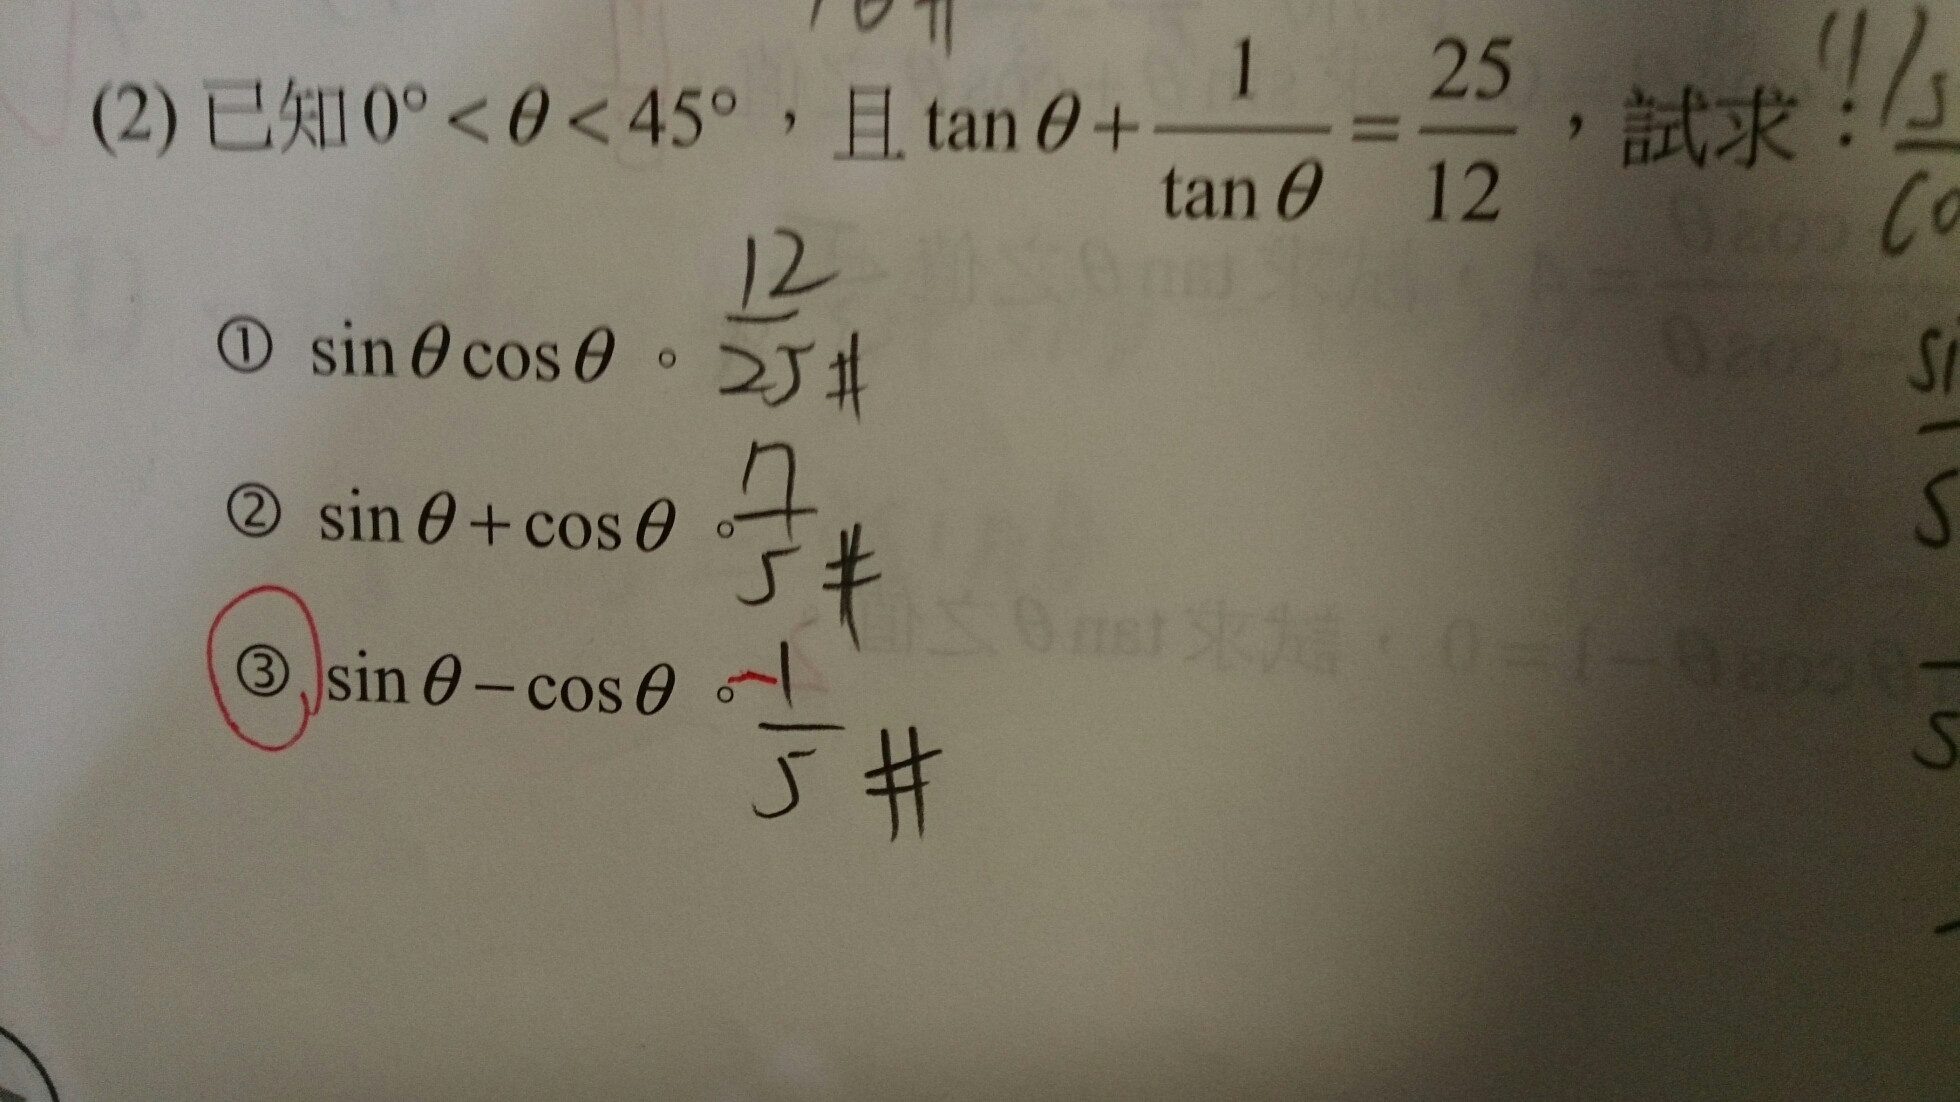 (2) 已知 0° < θ < 45°，且 tan θ + 1/tan θ = 25/12，試求：
① sin θ cos θ。 12/25 #
② sin θ + cos θ。 7/5 #
③ sin θ − cos θ。 -1/5 #